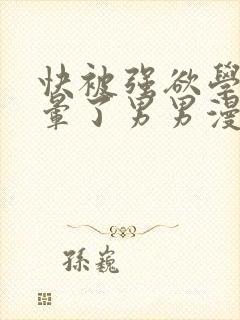 快被强欲學
暈了男男漫
孫巍